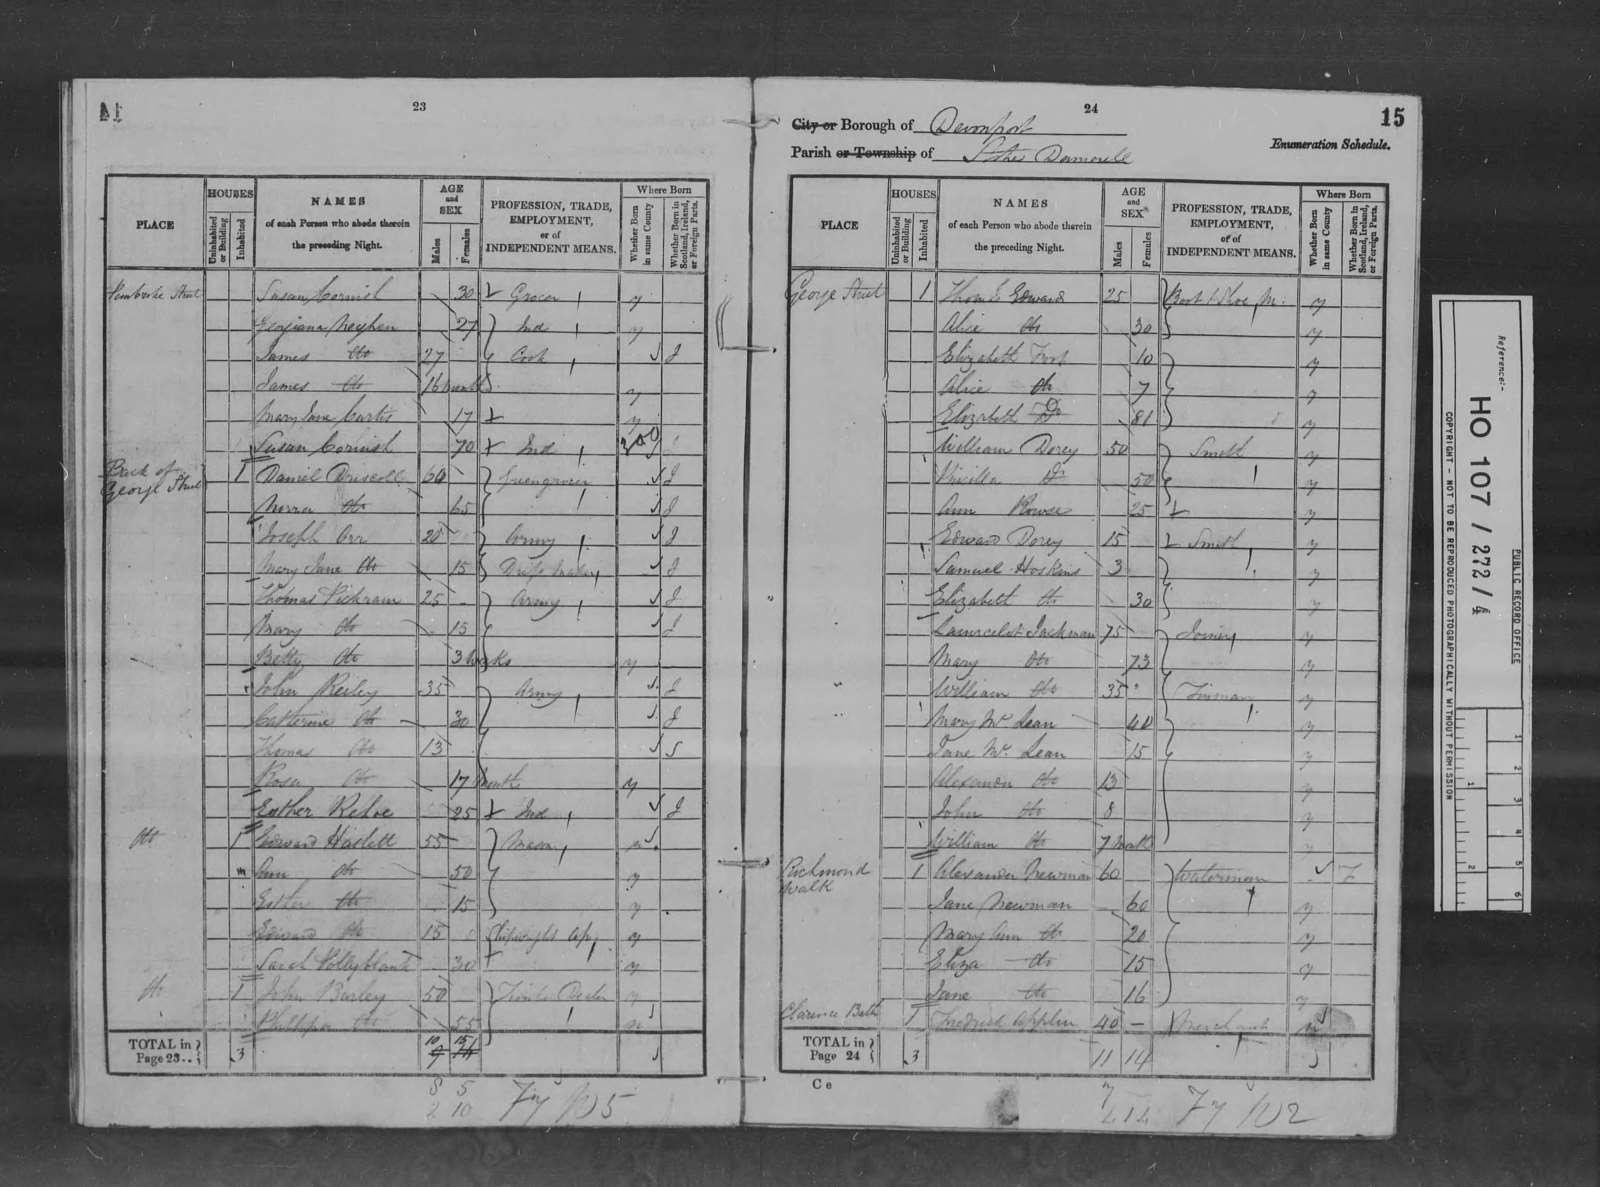 23
HOUSES
NAMES
AGE and SEX
PROFESSION, TRADE, EMPLOYMENT, or of INDEPENDENT MEANS.
Where Born
PLACE
Uninhabited or Building
Inhabited
of each Person who abode therein the preceding Night.
Males
Females
Whether Born in same County
Whether Born in Scotland, Ireland, or Foreign Parts.
Pembroke Street Susan Cornish 30 Grocer y
Georgiana 27 Ind y
James Do 27 Cook J
James Do 16 months y
Mary Jane Curtis 17 y
Susan Cornish 70 Ind
Back of George Street 1 Daniel Driscoll 60 Greengrocer J
Norra Do 65 J
Joseph Orr 20 Army J
Mary Jane Do 15 Dress Maker J
Thomas Vickram 25 Army J
Mary Do 15 J
Betty Do 3 Weeks y
John Reiley 35 Army J
Catherine Do 30 J
Thomas Do 13 S
Rosa Do 17 Months y
Esther 25 Ind J
Do 1 Edward Haslett 55 Mason n
Ann Do 50 y
Esther Do 15 y
Edward Do 15 Shipwright Ap. y
Sarah Pollyblank 30 y
Do 1 John Burley 50 Dealer y
Do 55 n
TOTAL in Page 23.. 3 10 15
8 5
2 10
24
15
City or Borough of Devonport
Parish or Township of Stoke Damerell
Enumeration Schedule.
PLACE
HOUSES
Uninhabited or Building
Inhabited
NAMES
of each Person who abode therein the preceding Night.
AGE and SEX
Males
Females
PROFESSION, TRADE, EMPLOYMENT, or of INDEPENDENT MEANS.
Where Born
Whether Born in same County
Whether Born in Scotland, Ireland, or Foreign Parts.
George Street 1 Edward 25 Boot & Shoe M. y
Alice Do 30 y
Elizabeth Foot 10 y
Alice Do 7 y
Elizabeth Do 81 y
William Dorey 50 Smith y
Do 50 y
Ann Rowse 25 y
Edward Dorey 15 Smith y
Samuel Hoskins 3 y
Elizabeth Do 30 y
Jackman 75 Joiner y
Mary Do 73 y
William Do 35 Tinman y
Mary Mc Lean 40 y
Jane Mc Lean 15 y
Alexander Do 13 y
John Do 8 y
William Do 7 Month y
Richmond Walk 1 Alexander Newman 60 Waterman F
Jane Newman 60 y
Mary Ann Do 20 y
Eliza Do 15 y
Jane Do 16 y
Clarence Bath 1 Fredrick Applin 40 Merchant n
TOTAL in Page 24 3 11 14
C e
Reference:-
HO 107 / 272 / 4
PUBLIC RECORD OFFICE
COPYRIGHT - NOT TO BE REPRODUCED PHOTOGRAPHICALLY WITHOUT PERMISSION
1 2 3 4 5 6
1 2